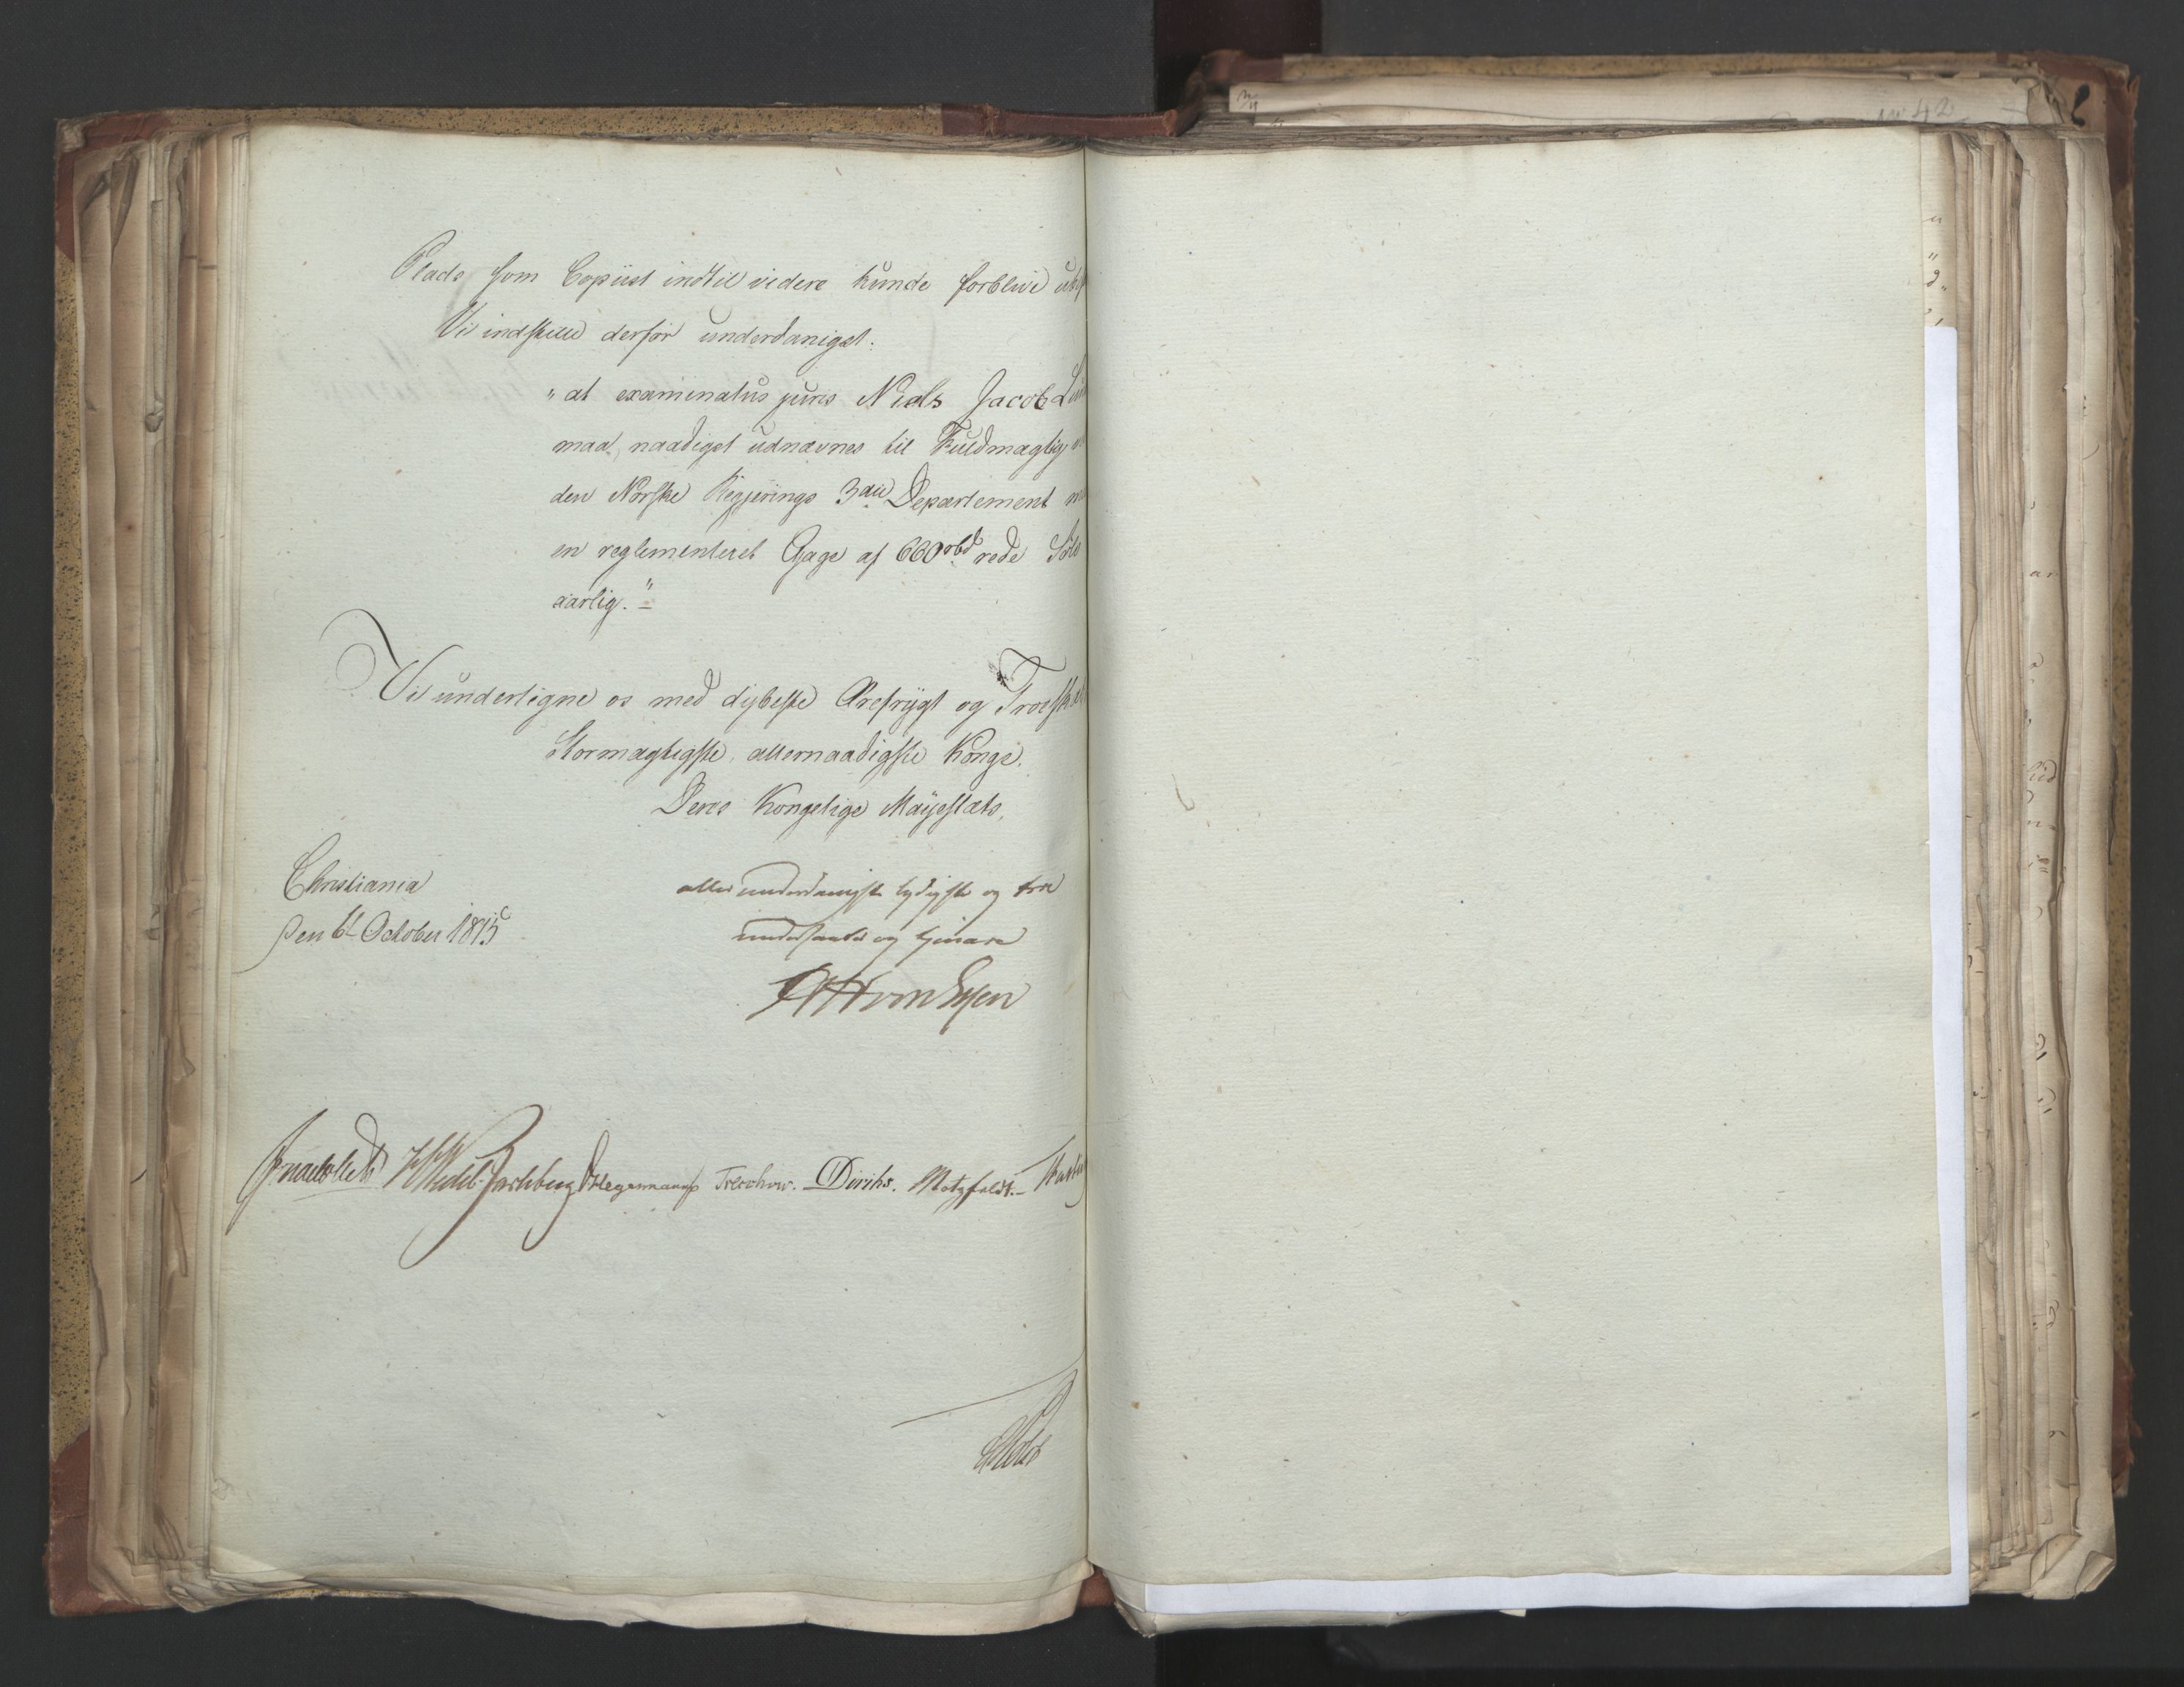 Plads som Copiist indtil videre kunde forblive
Vi indstille derfor underdanigst:
"at examinatus juris Niels Jacob
maa, naadigst udnævnes til Fuldmægtig
den Norske Regjerings 3die Departement
en reglementeret Gage af 660 rbd rede
aarlig."
Vi undertegne os med dybeste Ærefrygt og
Stormægtigste, allernaadigste Konge.
Deres Kongelige Majestæts,
Christiania
den 6t October 1815
allerunderdanigste lydigste og tro
undersaater og tjenare
von Essen
Wedel-Jarlsberg Hegermann Treschow. Diriks. Motzfeldt.